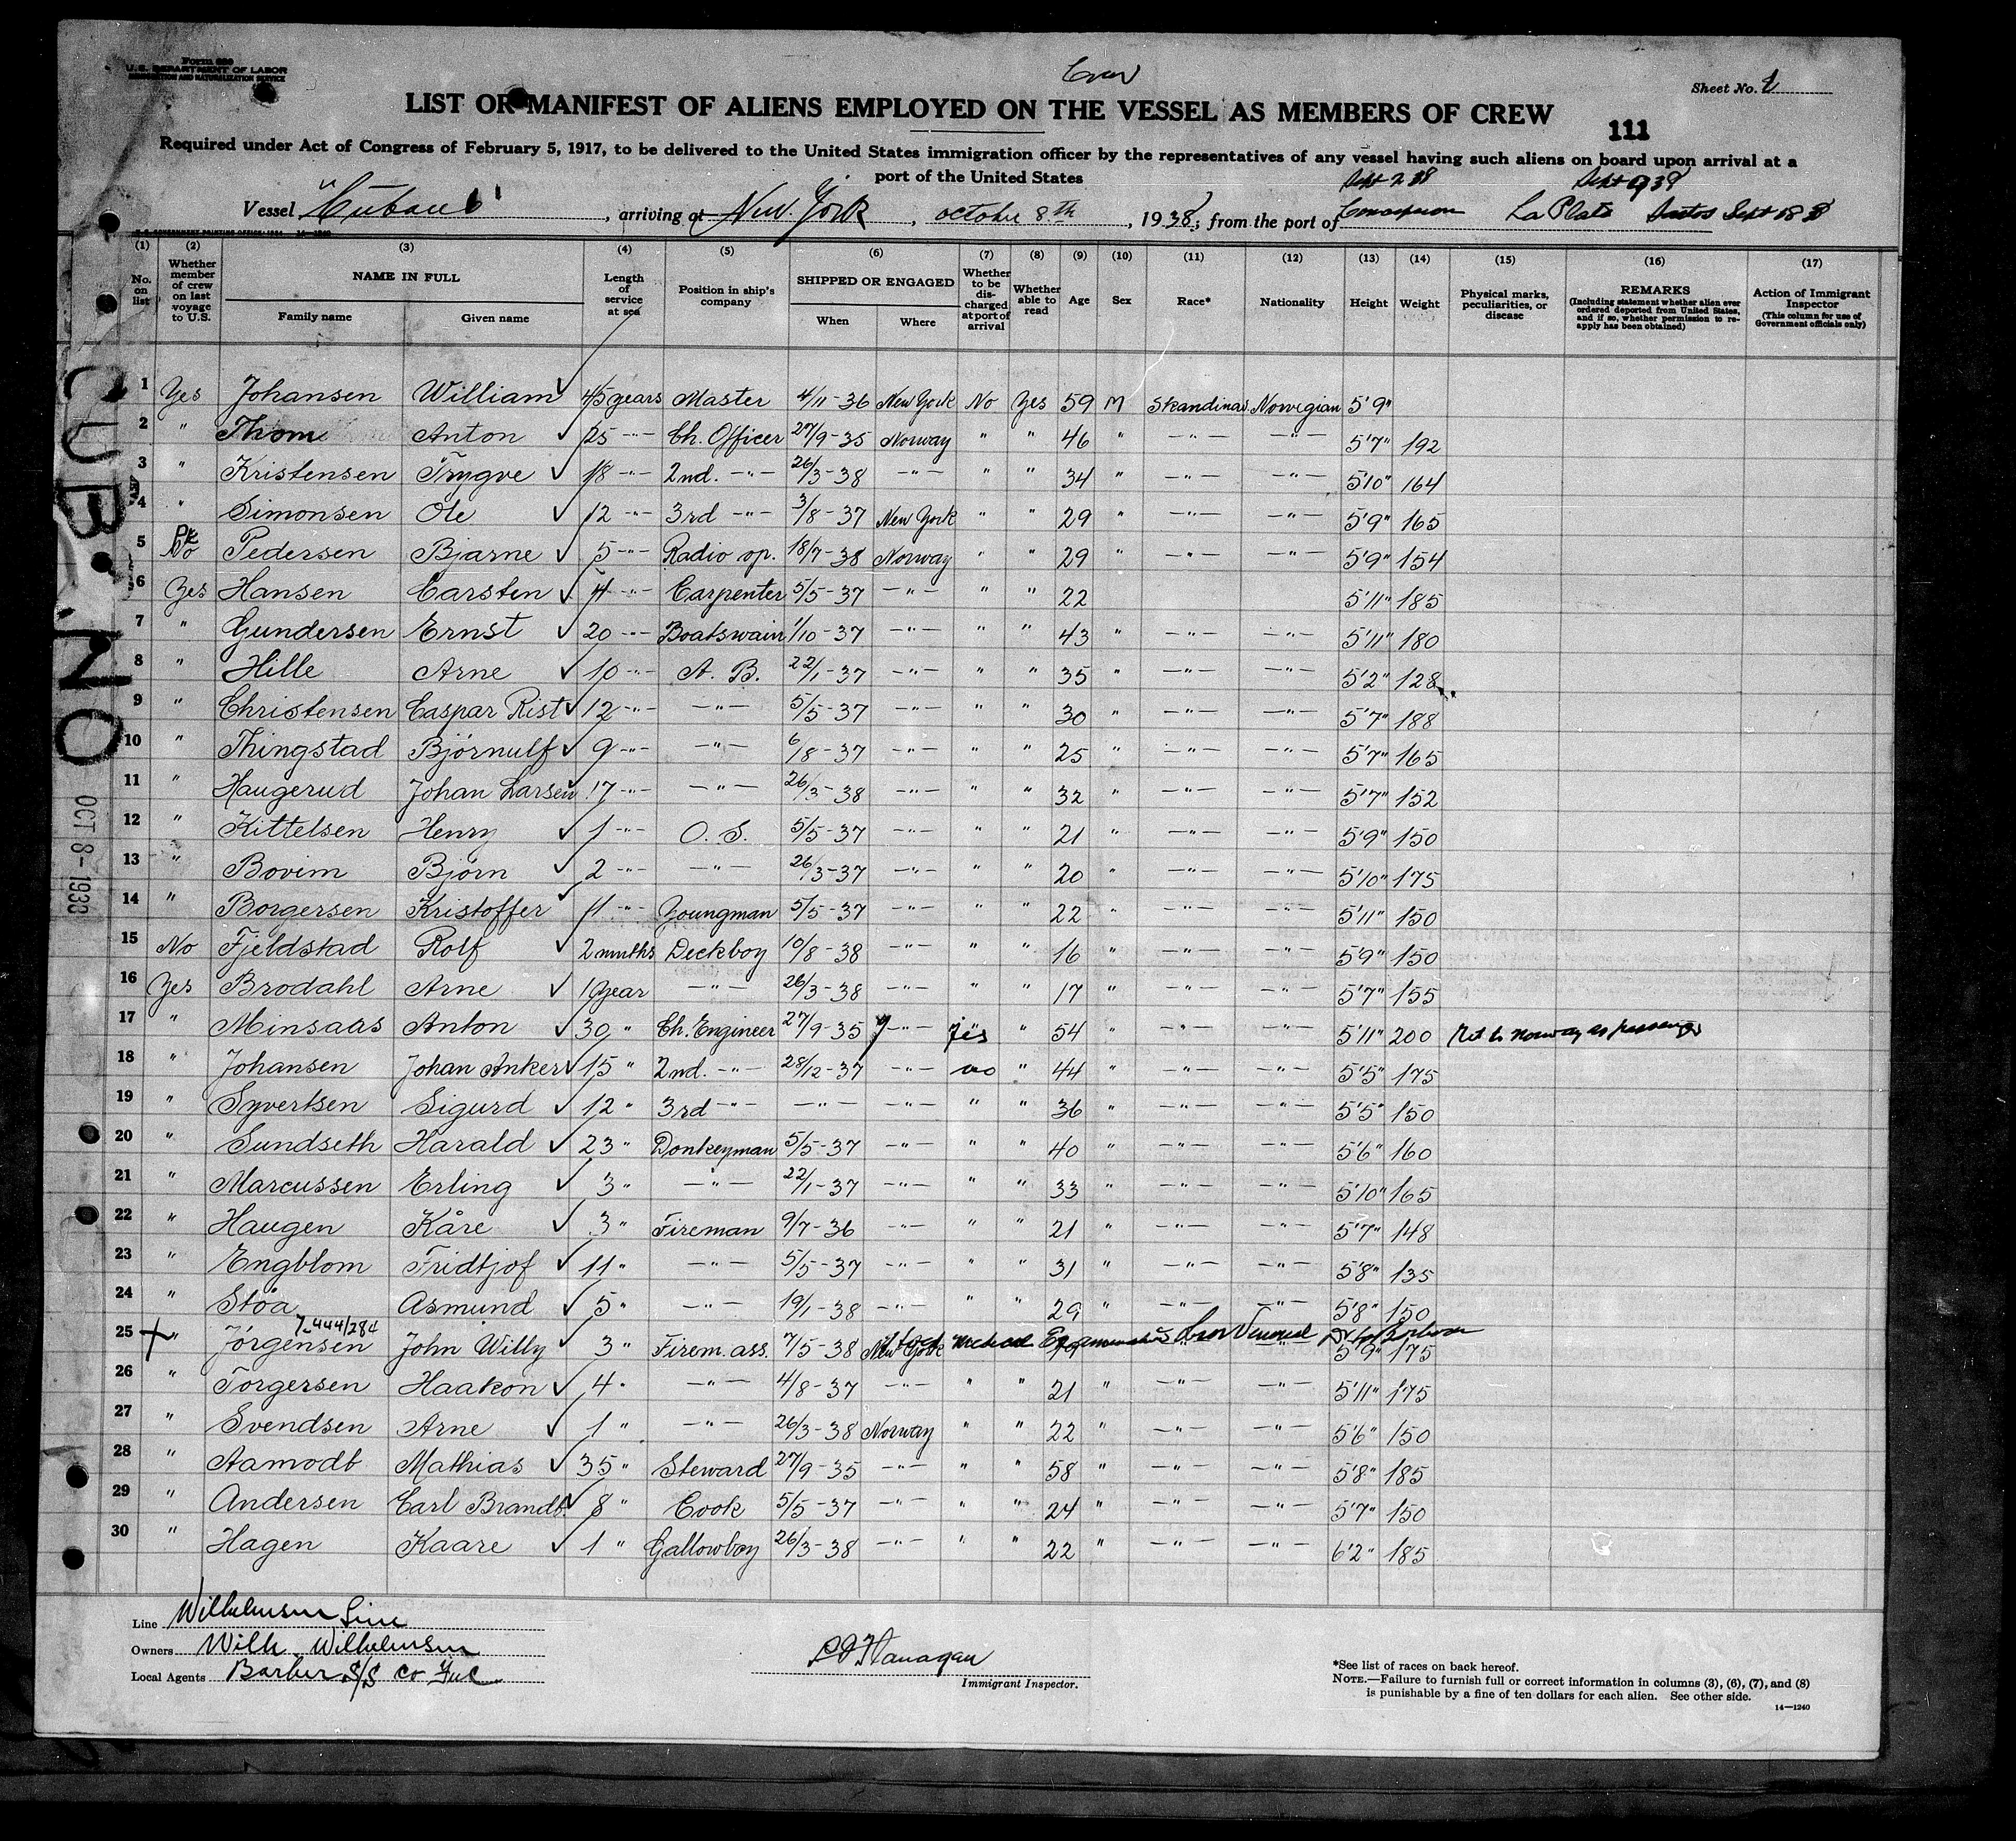 Form 680
U.S. DEPARTMENT OF LABOR
IMMIGRATION AND NATURALIZATION SERVICE
Crew
Sheet No. 1
LIST OR MANIFEST OF ALIENS EMPLOYED ON THE VESSEL AS MEMBERS OF CREW
111
Required under Act of Congress of February 5, 1917, to be delivered to the United States immigration officer by the representatives of any vessel having such aliens on board upon arrival at a
port of the United States
Sept 2 38 Sept 9 38
Vessel "Cubano", arriving at New York, october 8th, 1938, from the port of Concepcion La Plata Santos Sept 18 38
(1) (2) (3) (4) (5) (6) (7) (8) (9) (10) (11) (12) (13) (14) (15) (16) (17)
No. on list
Whether member of crew on last voyage to U.S.
NAME IN FULL
Family name Given name
Length of service at sea
Position in ship's company
SHIPPED OR ENGAGED
When Where
Whether to be discharged at port of arrival
Whether able to read
Age
Sex
Race*
Nationality
Height
Weight
Physical marks, peculiarities, or disease
REMARKS
(Including statement whether alien ever ordered deported from United States, and if so, whether permission to reapply has been obtained)
Action of Immigrant Inspector
(This column for use of Government officials only)
1 Yes Johansen William 45 years Master 4/11-36 New York No Yes 59 M Skandinav. Norwegian 5'9"
2 " Thom Anton 25 -"- Ch. Officer 27/9-35 Norway " " 46 " -"- -"- 5'7" 192
3 " Kristensen Trygve 18 -"- 2nd. -"- 26/3-38 -"- " " 34 " -"- -"- 5'10" 164
4 " Simonsen Ole 12 -"- 3rd -"- 3/8-37 New York " " 29 " -"- -"- 5'9" 165
5 No Pedersen Bjarne 5 -"- Radio op. 18/7-38 Norway " " 29 " -"- -"- 5'9" 154
6 Yes Hansen Carsten 4 -"- Carpenter 5/5-37 -"- " " 22 5'11" 185
7 " Gundersen Ernst 20 -"- Boatswain 1/10-37 -"- " " 43 " -"- -"- 5'11" 180
8 " Hille Arne 10 -"- A. B. 22/1-37 -"- " " 35 " -"- -"- 5'2" 128
9 " Christensen Caspar Rist 12 -"- -"- 5/5-37 -"- " " 30 " -"- -"- 5'7" 188
10 " Thingstad Björnulf 9 -"- -"- 6/8-37 -"- " " 25 " -"- -"- 5'7" 165
11 " Haugerud Johan Larsen 17 -"- -"- 26/3-38 -"- " " 32 " -"- -"- 5'7" 152
12 " Kittelsen Henry 1 -"- O. S. 5/5-37 -"- " " 21 " -"- -"- 5'9" 150
13 " Bovim Björn 2 -"- -"- 26/3-37 -"- " " 20 " -"- -"- 5'10" 175
14 " Borgersen Kristoffer -"- Youngman 5/5-37 -"- " " 22 " -"- -"- 5'11" 150
15 No Fjeldstad Rolf 2 months Deckboy 10/8-38 -"- " " 16 " -"- -"- 5'9" 150
16 Yes Brodahl Arne 1 year -"- 26/3-38 -"- " " 17 " -"- -"- 5'7" 155
17 " Minsaas Anton 30 " Ch. Engineer 27/9-35 -"- yes " 54 " -"- -"- 5'11" 200 Ret to Norway as passenger
18 " Johansen Johan Anker 15 " 2nd. -"- 28/12-37 -"- no " 44 " -"- -"- 5'5" 175
19 " Syvertsen Sigurd 12 " 3rd -"- -"- -"- " " 36 " -"- -"- 5'5" 150
20 " Sundseth Harald 23 " Donkeyman 5/5-37 -"- " " 40 " -"- -"- 5'6" 160
21 " Marcussen Erling 3 " -"- 22/1-37 -"- " " 33 " -"- -"- 5'10" 165
22 " Haugen Kåre 3 " Fireman 9/7-36 -"- " " 21 " -"- -"- 5'7" 148
23 " Engblom Fridtjof 11 " -"- 5/5-37 -"- " " 31 " -"- -"- 5'8" 135
24 " Stöa Asmund 5 " -"- 19/1-38 -"- " " 29 " -"- -"- 5'8" 150
7-444/284
25 " Jörgensen John Willy 3 " Firem. ass. 7/5-38 New York Medical 5'9" 175
26 " Torgersen Haakon 4 " -"- 4/8-37 -"- " " 21 " -"- -"- 5'11" 175
27 " Svendsen Arne 1 " -"- 26/3-38 Norway " " 22 " -"- -"- 5'6" 150
28 " Aamodt Mathias 35 " Steward 27/9-35 -"- " " 58 " -"- -"- 5'8" 185
29 " Andersen Carl Brandt. 8 " Cook 5/5-37 -"- " " 24 " -"- -"- 5'7" 150
30 " Hagen Kaare 1 " Gallowboy 26/3-38 -"- " " 22 " -"- -"- 6'2" 185
CUBANO
OCT 8-1938
Line Wilhelmsen Line
Owners Wilh. Wilhelmsen
Local Agents Barber S/S Co Inc
Flanagan
Immigrant Inspector.
*See list of races on back hereof.
NOTE.—Failure to furnish full or correct information in columns (3), (6), (7), and (8)
is punishable by a fine of ten dollars for each alien. See other side.
14—1240